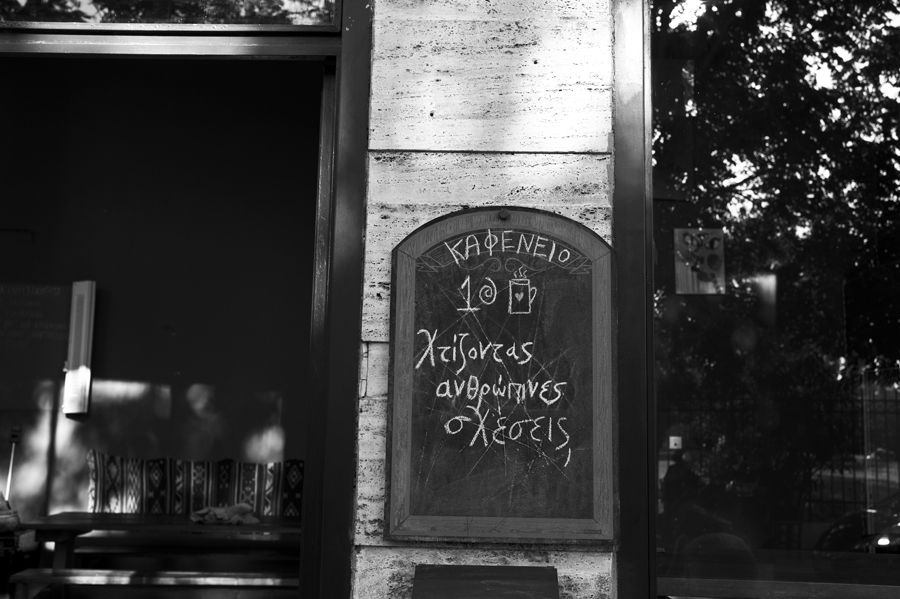 ΚΑΦΕΝΕΙΟ
1@
Χτίζοντας
ανθρώπινες
σχέσεις,